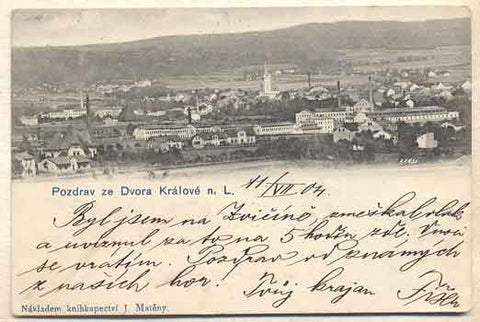 Pozdrav ze Dvora Králové n. L. 11/VII 04
Byl jsem na Zvičíně zmeškal vlak
a uvíznul za to na 5 hodin zde.
se vrátím. Pozdrav od známých
z našich hor. Tvůj krajan
Nákladem knihkupectví J. Matěny.